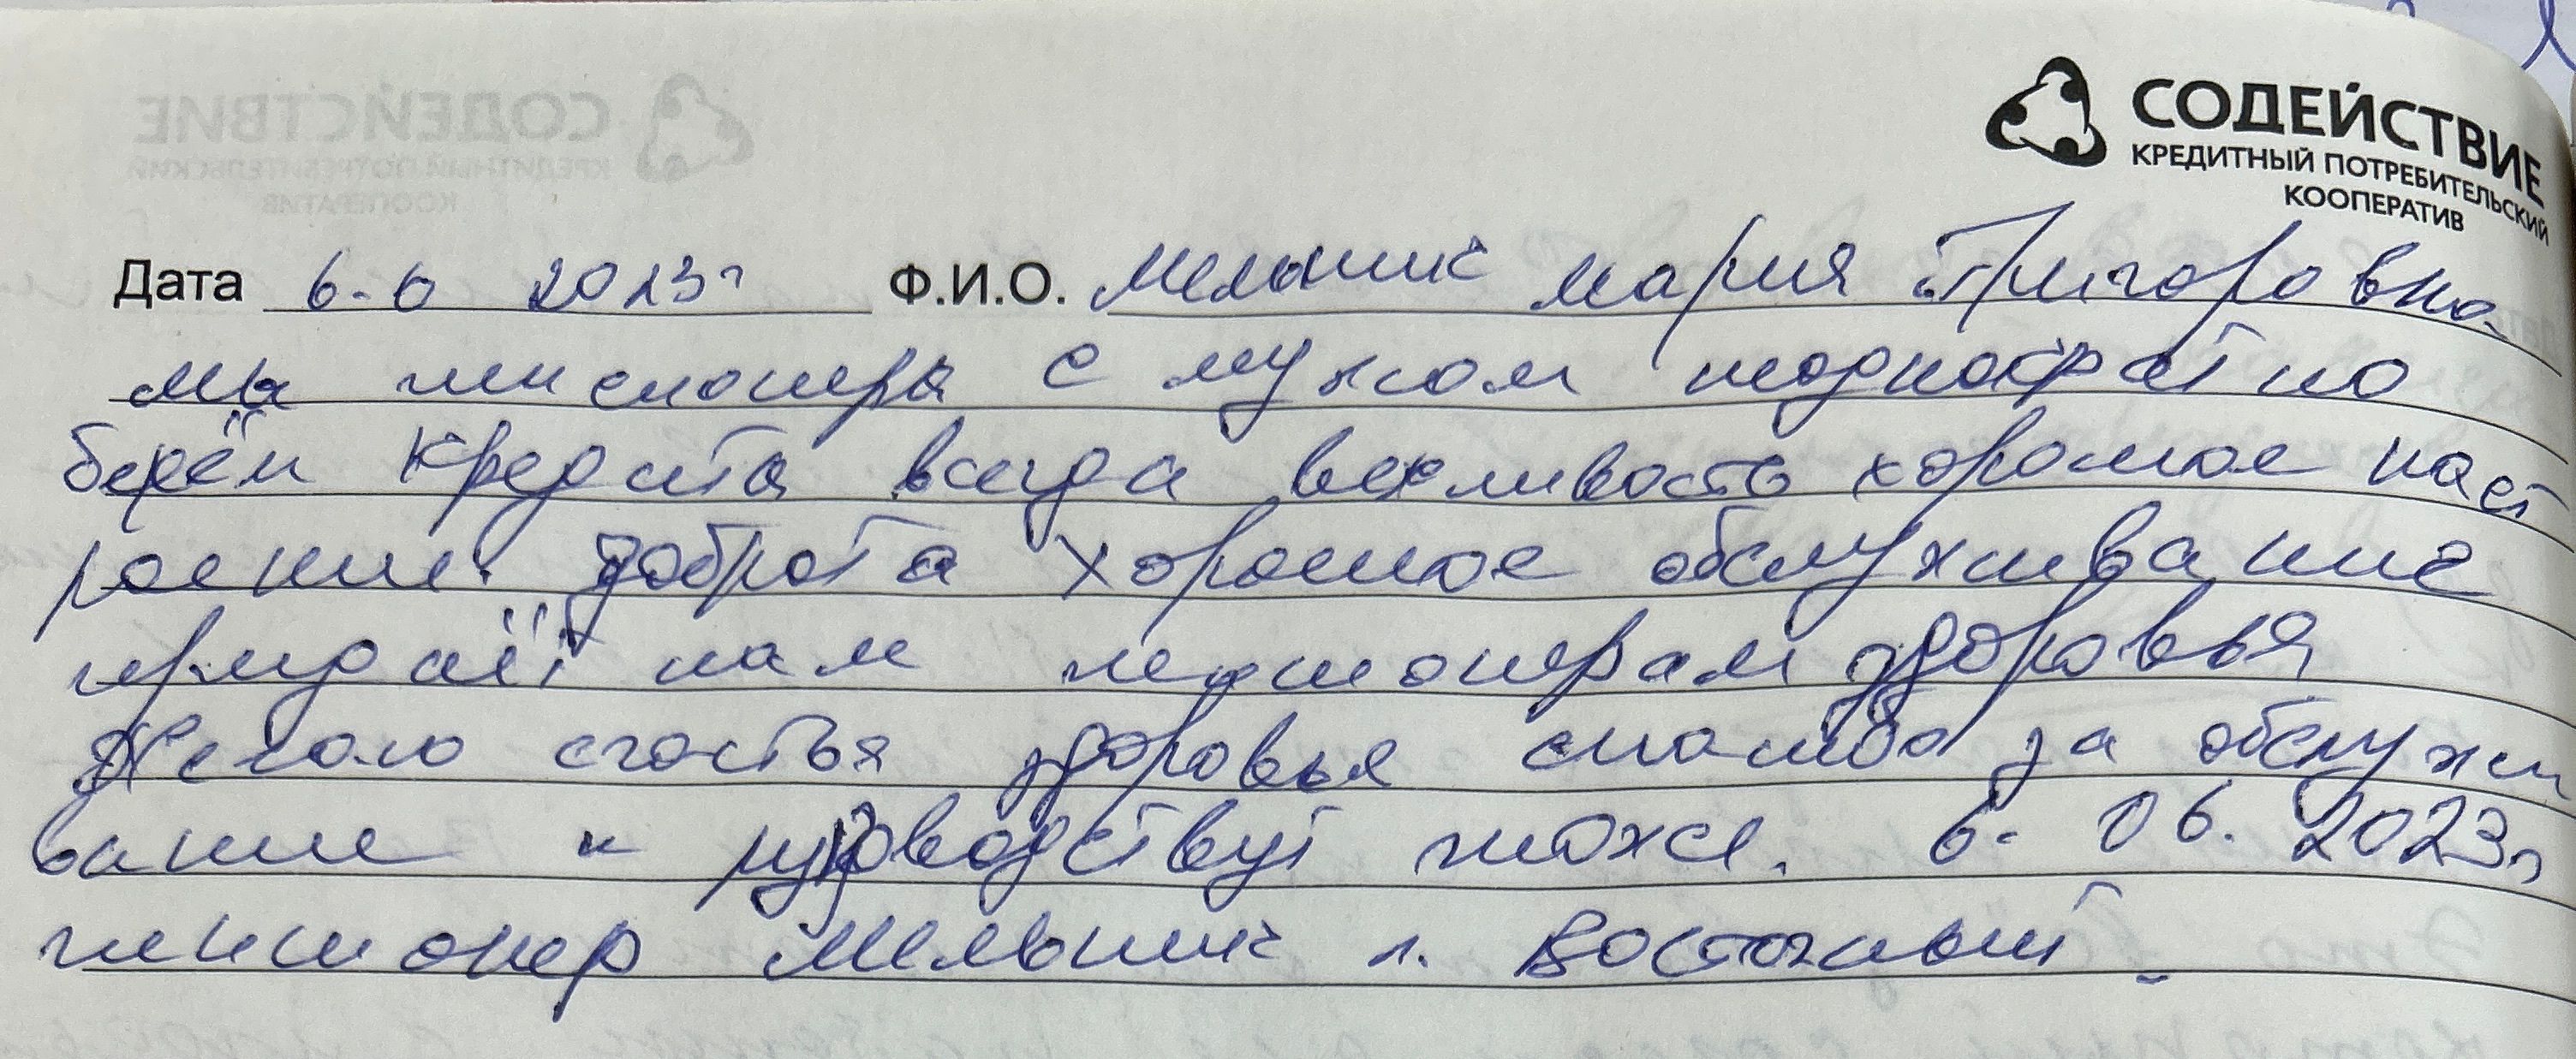 СОДЕЙСТВИЕ
КРЕДИТНЫЙ ПОТРЕБИТЕЛЬСКИЙ
КООПЕРАТИВ
Дата 6.6 2023г Ф.И.О. Мельник Мария Григоровна
мы пенсионеры с мужом неоднократно
берём кредита всегда вежливость хорошое наст
роение. доброта хорошое обслуживание
придаёт нам пенсионерам здоровья
Желаю счастья здоровья спасибо за обслужи
вание и руководствут тоже. 6. 06. 2023г
пенсионер Мельник п. Восточный